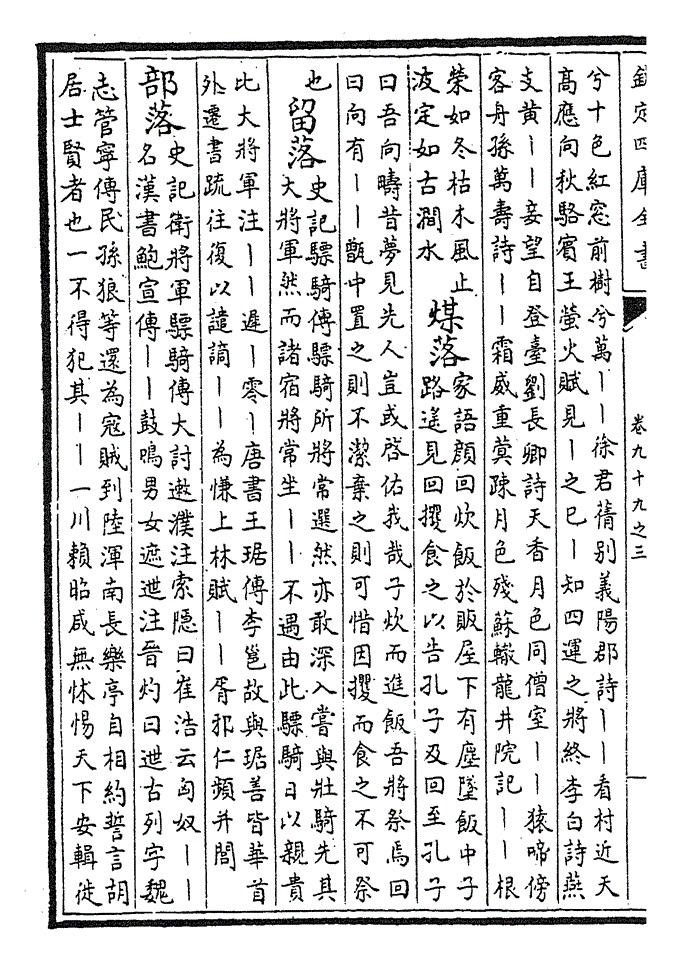 欽定四庫全書
卷九十九之三
兮十色紅窓前樹兮萬丨丨徐君蒨别義陽郡詩丨丨看村近天
髙應向秋駱賓王螢火賦見丨之已丨知四運之將終李白詩燕
支黄丨丨妾望自登臺劉長卿詩天香月色同僧室丨丨猿啼傍
客舟孫萬壽詩丨丨霜威重莫踈月色殘蘇轍龍井院記丨丨根
榮如冬枯木風止
波定如古澗水
煤落
家語顔回炊飯於敗屋下有塵墜飯中子
路遥見回攫食之以告孔子及回至孔子
曰吾向疇昔夢見先人豈或啓佑我哉子炊而進飯吾將祭焉回
曰向有丨丨甑中置之則不潔棄之則可惜因攫而食之不可祭
也
留落
史記驃騎傳驃騎所將常選然亦敢深入嘗與壯騎先其
大將軍然而諸宿將常坐丨丨不遇由此驃騎日以親貴
比大將軍注丨丨遲丨零丨唐書王琚傳李邕故與琚善皆華首
外遷書疏往復以譴謫丨丨為慊上林賦丨丨胥邪仁頻并閭
部落
史記衛將軍驃騎傳大討遬濮注索隱曰崔浩云匈奴丨丨
名漢書鮑宣傳丨丨鼓鳴男女遮迣注晉灼曰迣古列字魏
志管寧傳民孫狼等還為寇賊到陸渾南長樂亭自相約誓言胡
居士賢者也一不得犯其丨丨一川賴昭咸無怵惕天下安輯徙